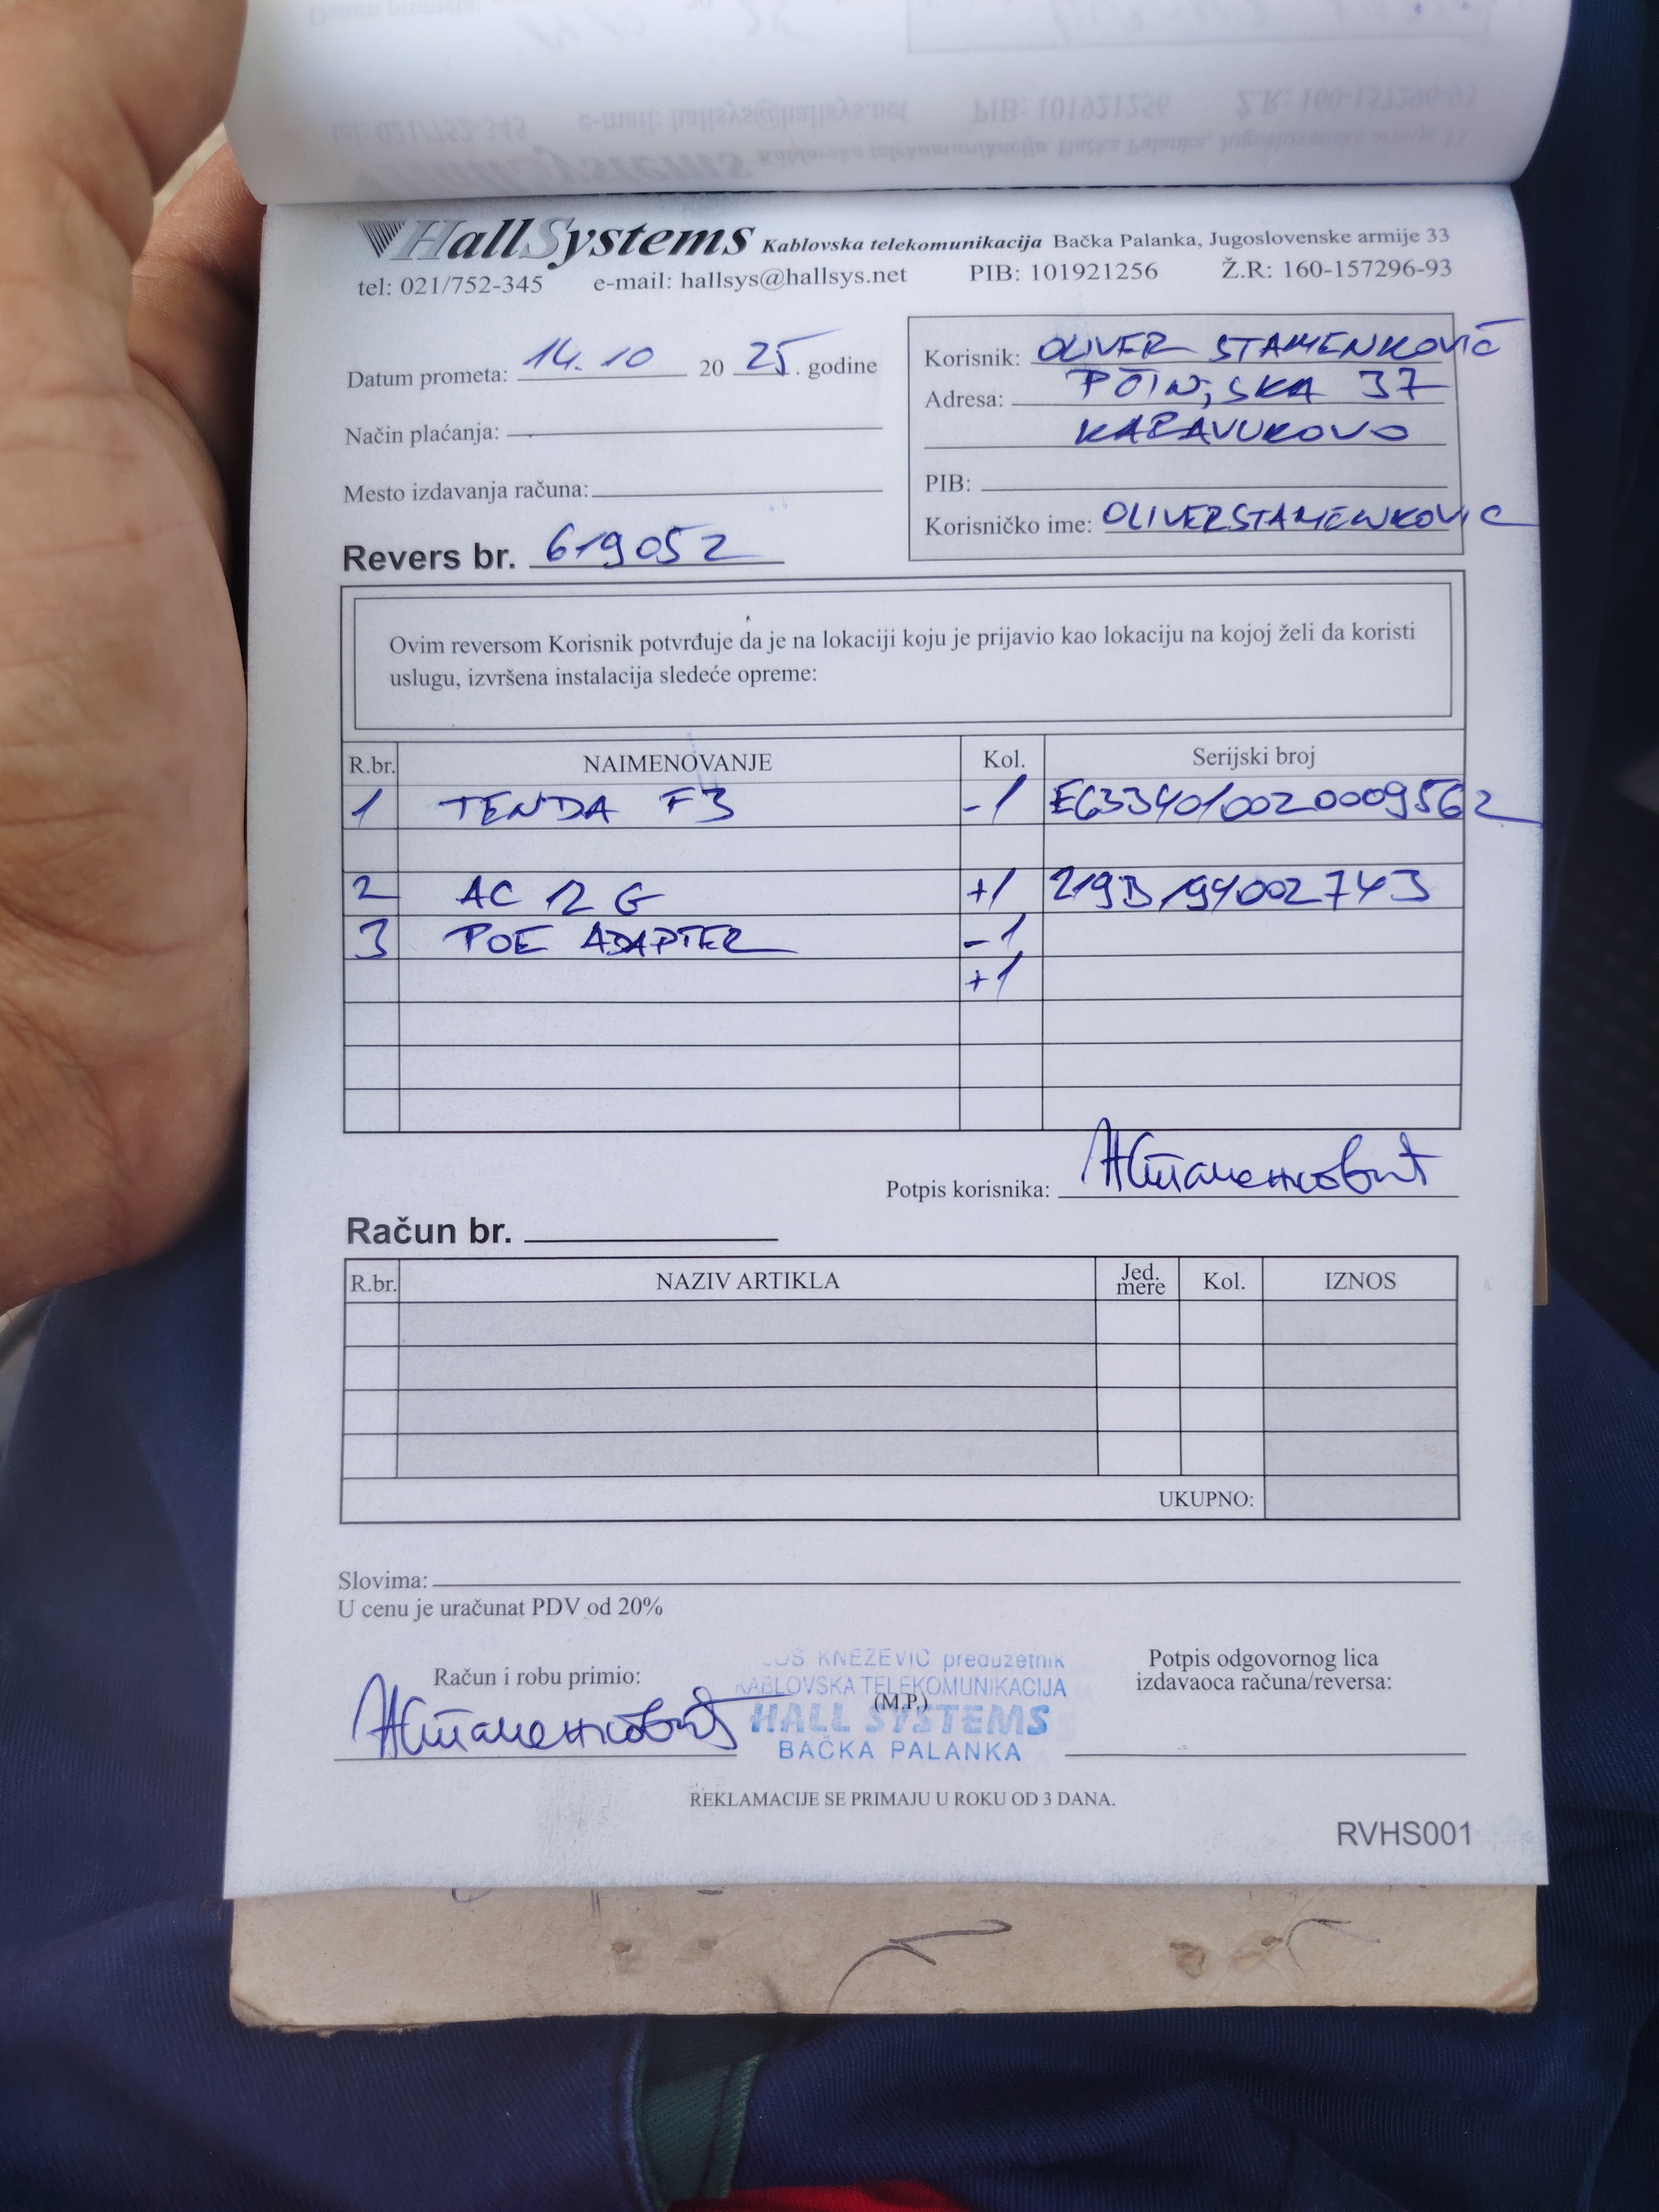 HallSystems Kablovska telekomunikacija Bačka Palanka, Jugoslovenske armije 33
tel: 021/752-345 e-mail: hallsys@hallsys.net PIB: 101921256 Ž.R: 160-157296-93
Datum prometa: 14.10 20 25. godine
Način plaćanja:
Mesto izdavanja računa:
Revers br. 619052
Korisnik: OLIVER STAMENKOVIĆ
Adresa: 37
KARAVUKOVO
PIB:
Korisničko ime: OLIVERSTAMENKOVIC
Ovim reversom Korisnik potvrđuje da je na lokaciji koju je prijavio kao lokaciju na kojoj želi da koristi
uslugu, izvršena instalacija sledeće opreme:
R.br. NAIMENOVANJE Kol. Serijski broj
1 TENDA F3 -1 E6334010020009562
2 AC 12 G +1 219B194002743
3 POE ADAPTER -1
+1
Potpis korisnika: АСтаменковић
Račun br.
R.br. NAZIV ARTIKLA Jed. mere Kol. IZNOS
UKUPNO:
Slovima:
U cenu je uračunat PDV od 20%
Račun i robu primio:
АСтаменковић
KNEŽEVIĆ preduzetnik
KABLOVSKA TELEKOMUNIKACIJA
(M.P.)
HALL SYSTEMS
BAČKA PALANKA
Potpis odgovornog lica
izdavaoca računa/reversa:
REKLAMACIJE SE PRIMAJU U ROKU OD 3 DANA.
RVHS001